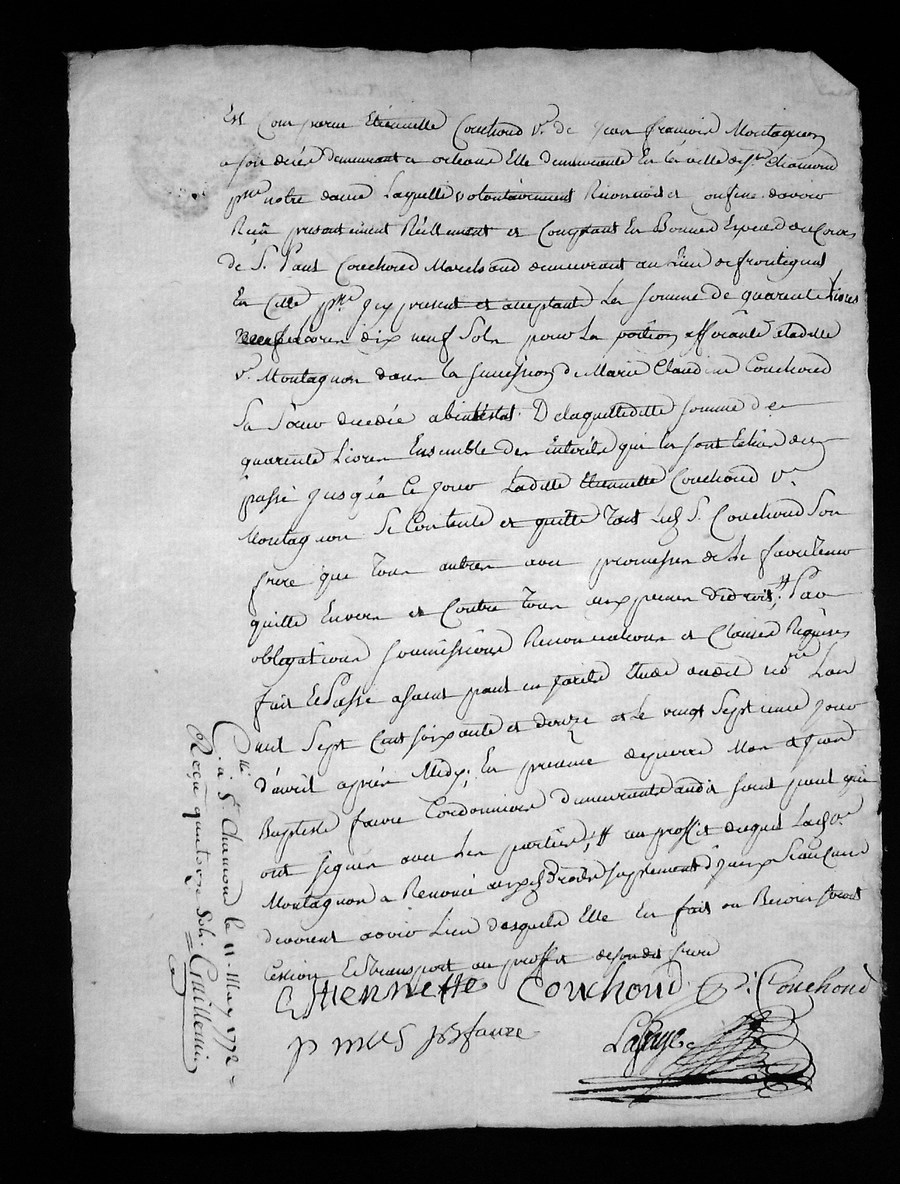 Est Comparue Etiennette Couchoud v.e de Jean françois Montagnon
a son décès demeurant a orleans Elle demeurante En la ville de St. chamond
p.sse notre dame Laquelle volontairement Reconnoit et confesse d'avoir
Reçu presentement Réellement et Comptant En Bonnes Especes de Cours
de S. Paul Couchoud Marchand demeurant au Lieu de
En Cette p.sse Icy present et acceptant La somme de quarente Livres
dix neuf Sols pour La portion afferante a ladite
v.e Montagnon dans la succession de Marie Claudine Couchoud
Sa Sœur decedée abintestat. De laquelle ditte somme de
quarente Livres Ensemble des interêts qui lui sont
passé jusqu'a ce jour Laditte Etiennette Couchoud v.e
Montagnon Se Contente et quitte tant Led. S. Couchoud Son
frere que tous autres avec promesse de Le faire tenir
quitte Envers et Contre tous aux peines de droit # Par
obligations soumissions Renonciations et Clauses Requises
fait Et Passé a saint paul en Jarèts étude dudit no.re L'an
mil Sept Cent soixante et douze et Le vingt Septieme jour
d'avril après Midy; En presence de pierre Mas et Jean
Baptiste favre Cordonniers demeurants audit saint paul qui
ont signé avec Les parties; # au proffit duquel Lad. v.e
Montagnon a Renoncé aux Droits suplement d'yceux Si aucuns
devoient avoir Lieu desquels Elle En fait au Besoin
Cession Et transport au proffit de sondit frere
Etiennette Couchoud P. Couchoud
p mas jB faure
Lafaye
C.llé à St. Chamond le 11 May 1772
Reçu quatorze sols. Guillemin